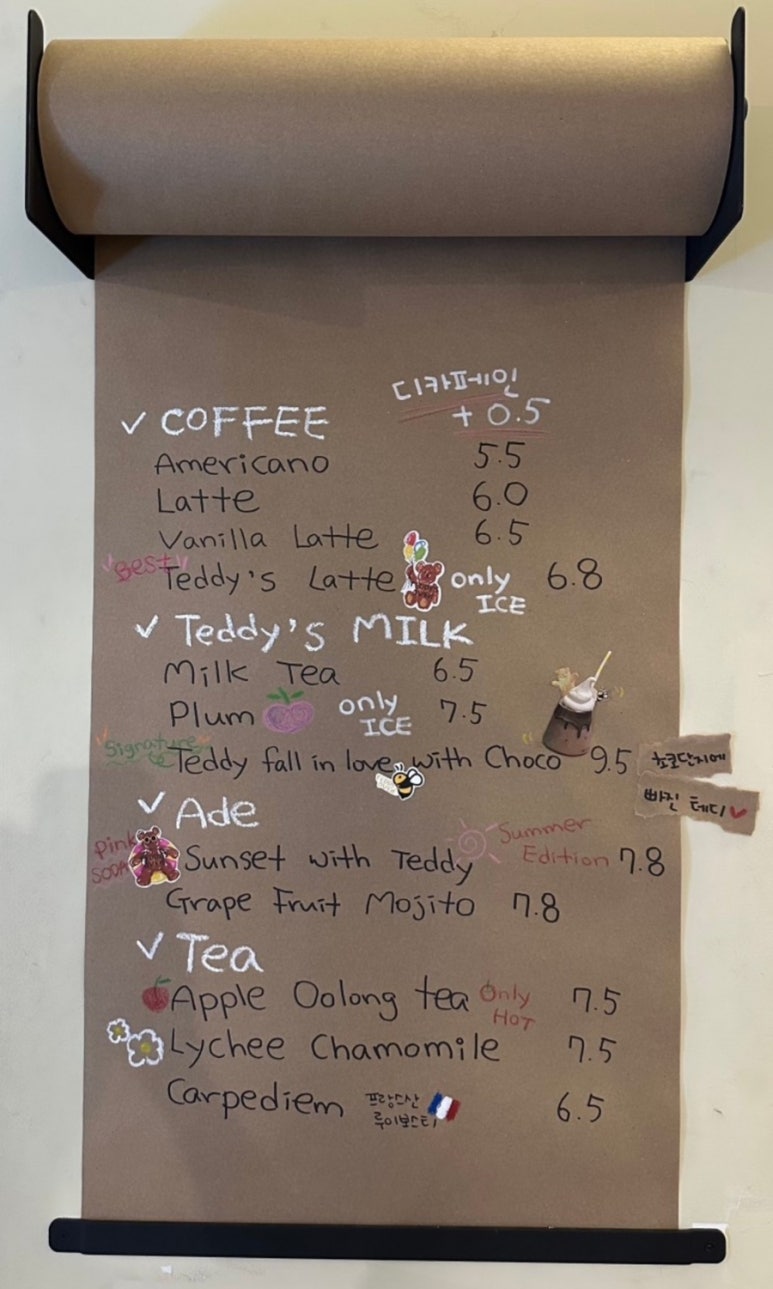 디카페인
✓ COFFEE + 0.5
Americano 5.5
Latte 6.0
Vanilla Latte 6.5
"Best" Teddy's Latte only ICE 6.8
✓ Teddy's MILK
Milk Tea 6.5
Plum only ICE 7.5
Signature Teddy fall in love with Choco 9.5 초코단지에
빠진 테디
✓ Ade
Pink SODA Sunset with Teddy Summer Edition 7.8
Grape Fruit Mojito 7.8
✓ Tea
Apple Oolong tea Only HOT 7.5
Lychee Chamomile 7.5
Carpediem 프랑스산 루이보스티 6.5